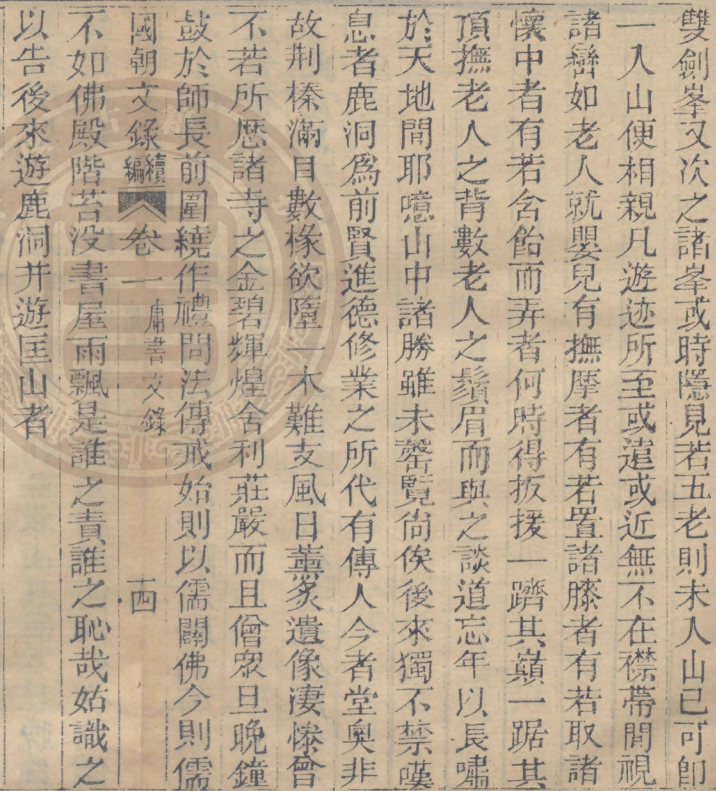 雙劍峯又次之諸峯或時隱見若五老則未入山已可卽
一入山便相親凡遊迹所至或遠或近無不在襟帶間視
諸巒如老人就嬰兒有撫摩者有若置諸膝者有若取諸
懷中者有若含飴而弄者何時得扳援一躋其巔一踞其
頂撫老人之背數老人之鬚眉而與之談道忘年以長嘯
於天地間耶噫山中諸勝雖未罄覽尙俟後來獨不禁嘆
息者鹿洞爲前賢進德修業之所代有傳人今者堂奧非
故荆榛滿目數椽欲墮一木難支風日薰炙遺像淒慘曾
不若所歷諸寺之金碧輝煌舍利莊嚴而且僧眾旦晚鐘
鼓於師長前圍繞作禮問法傳戒始則以儒闢佛今則儒
國朝文錄續編 卷一 庸書文錄 十四
不如佛殿階苔没書屋雨飄是誰之責誰之恥哉姑識之
以告後來遊鹿洞并遊匡山者